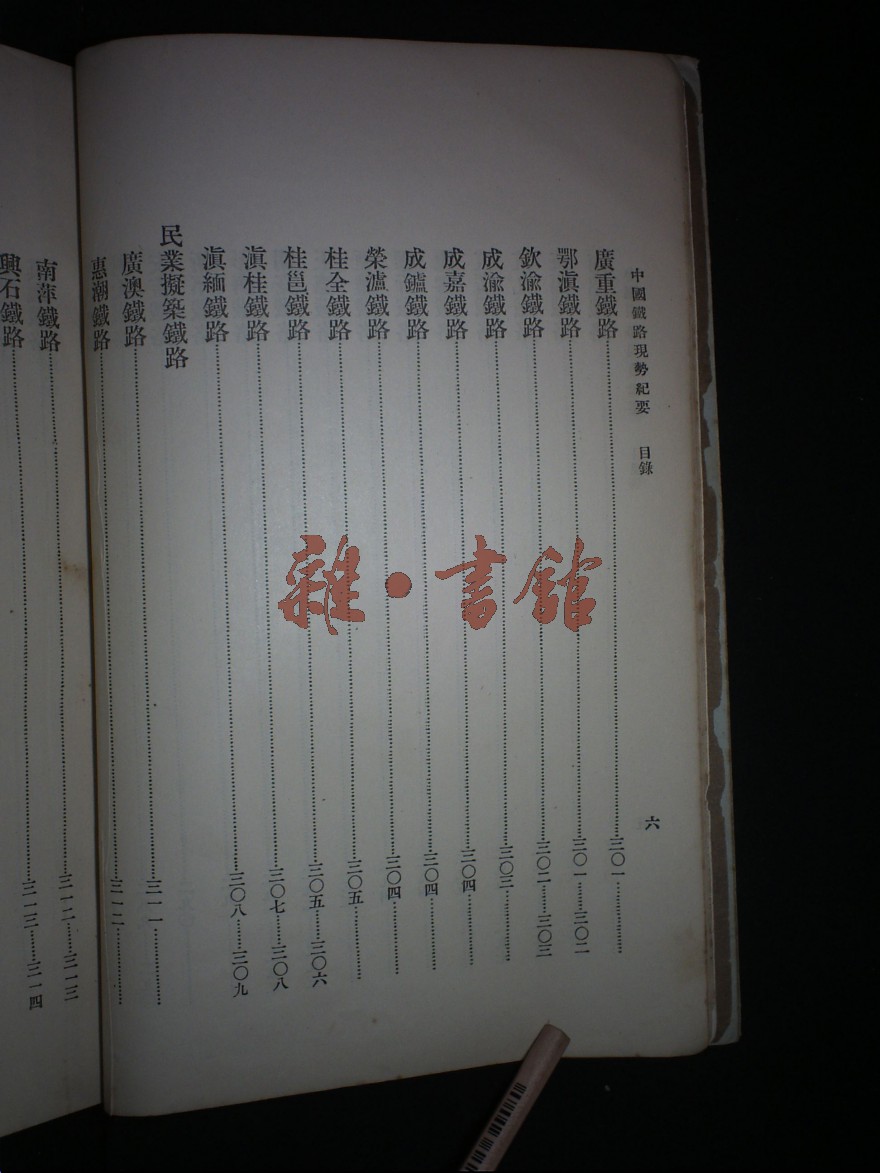 中國鐵路現勢紀要 目錄 六
廣重鐵路……三〇一……
鄂滇鐵路……三〇一……三〇二
欽渝鐵路……三〇二……三〇三
成渝鐵路……三〇三……
成嘉鐵路……三〇四……
成鑪鐵路……三〇四……
榮瀘鐵路……三〇四……
桂全鐵路……三〇五……
桂邕鐵路……三〇五……三〇六
滇桂鐵路……三〇七……三〇八
滇緬鐵路……三〇八……三〇九
民業擬築鐵路
廣澳鐵路……三一一……
惠潮鐵路……三一二……
南萍鐵路……三一二……三一三
興石鐵路……三一三……三一四
雜·書館